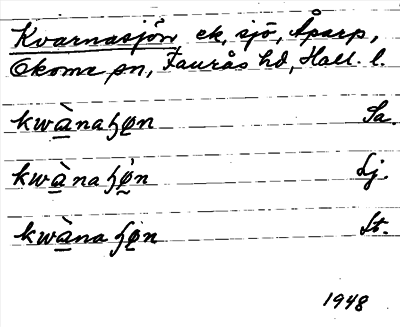 Kvarnasjön ek, sjö, Åparp,
Okome sn, Faurås hd, Hall. l.
kwànaɧøn Sa.
kwànaɧø̀n Lj.
kwànaɧø̀n St.
1948